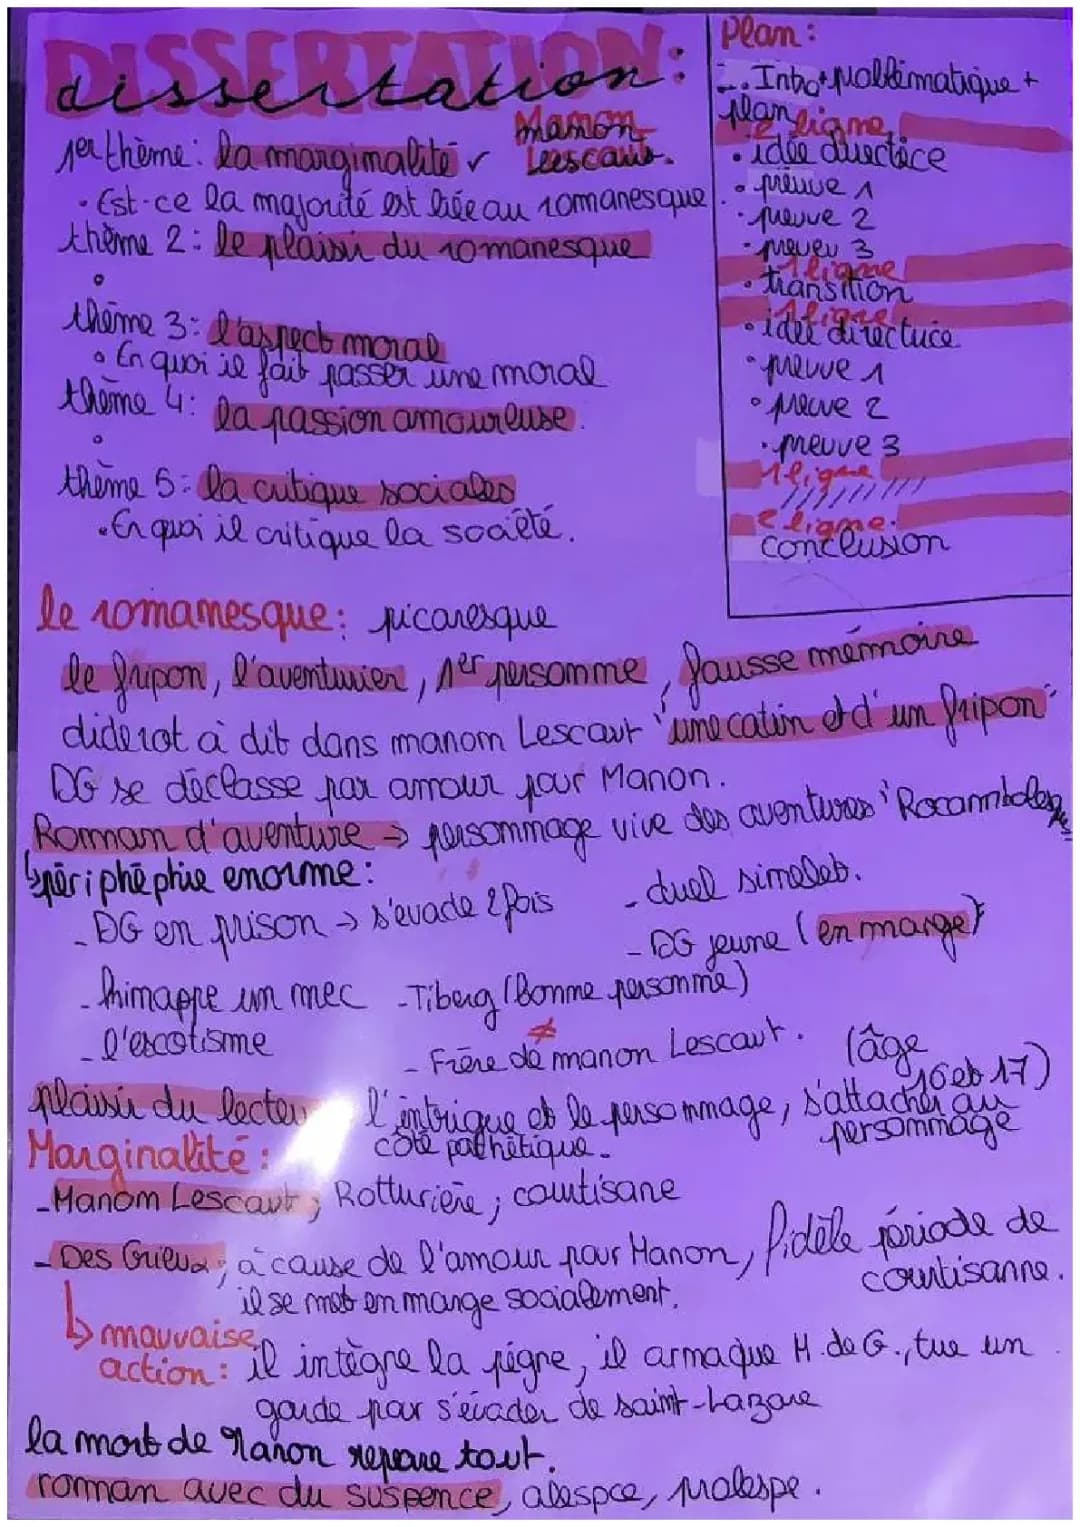 DISSERTATION:
dissertation
Manon
manon
Lescaut.
1er thème: la marginalité
• Est-ce la majorité est liée au romanesque
thème 2: le plaisir du romanesque
thème 3: l'aspect moral
• En quoi il fait passer une moral
thème 4: la passion amoureuse.
thème 5: la critique sociales
• En quoi il critique la société.
Plan:
Intro + problématique +
plan
2 ligne
• idée directice
• preuve 1
• preuve 2
- preuve 3
1 ligne
• transition
1 ligne
• idée directrice
• preuve 1
• preuve 2
• preuve 3
1 ligne
2 ligne.
conclusion
le romanesque: picaresque
le fripon, l'aventurier, 1er personne, fausse mémoire
diderot à dit dans manon Lescaut "une catin et d'un fripon"
DG se déclasse par amour pour Manon.
Roman d'aventure → personnage vive des aventures Rocambolesques
périphéptie enorme:
- DG en prison → s'evade 2 fois
- duel simeleb.
- DG jeune (en marge)
- kinappe un mec
- Tiberg (bonne personne)
- l'escotisme
≠
- Frère de manon Lescaut.
(âge
16 et 17)
plaisir du lecteur l'intrigue et le personnage, s'attacher au
côté pathétique.
personnage
Marginalité:
- Manon Lescaut; Rotturière; courtisane
- Des Grieux; à cause de l'amour pour Manon, fidèle période de
courtisanne.
il se met en marge socialement.
mauvaise
action: il intègre la pègre, il arnaque M. de G., tue un
garde pour s'évader de saint-Lazare
la mort de Manon repare tout.
roman avec du suspence, alespce, prolespe.